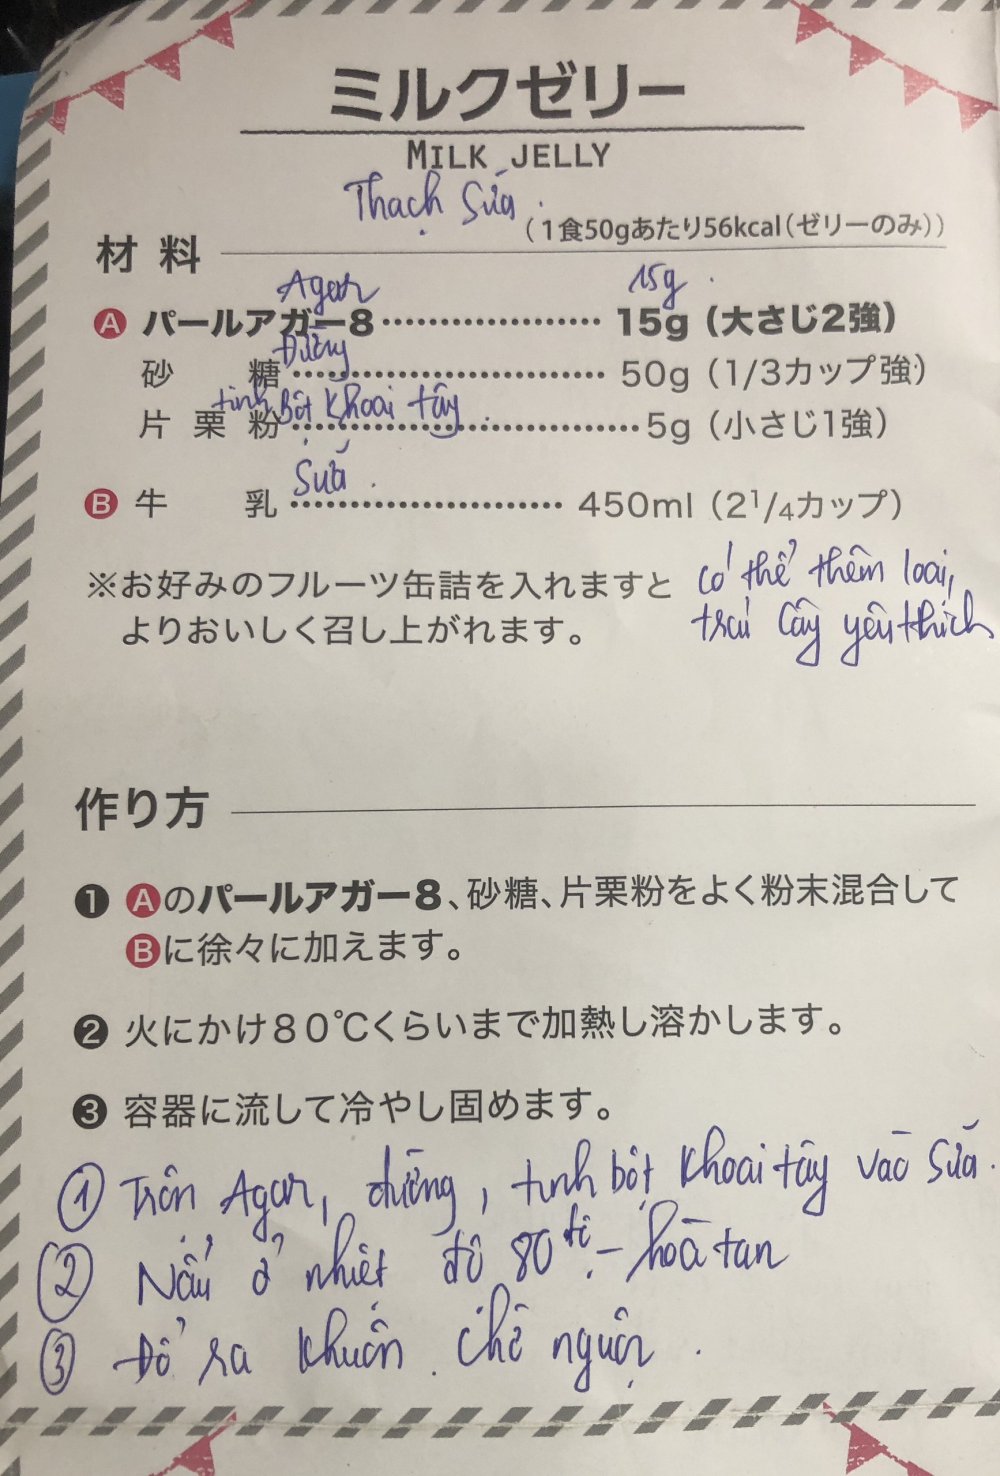 ミルクゼリー
MILK JELLY
Thạch Sữa.
(1食50gあたり56kcal(ゼリーのみ))
材料
Agar 15g.
Ⓐ パールアガー8 ………………… 15g(大さじ2強)
Đường
砂糖 ………………………… 50g(1/3カップ強)
tinh Bột Khoai tây.
片栗粉 ………………………… 5g(小さじ1強)
Sữa.
Ⓑ 牛乳 ……………………… 450ml(2 1/4カップ)
※お好みのフルーツ缶詰を入れますと
よりおいしく召し上がれます。
có thể thêm loại
trái Cây yêu thích
作り方
❶ Ⓐのパールアガー8、砂糖、片栗粉をよく粉末混合して
Ⓑに徐々に加えます。
❷ 火にかけ80℃くらいまで加熱し溶かします。
❸ 容器に流して冷やし固めます。
① Trộn Agar, đường, tinh bột Khoai tây vào Sữa.
② Nấu ở nhiệt độ 80 độ - hoà tan
③ Đổ ra Khuôn. chờ nguội.